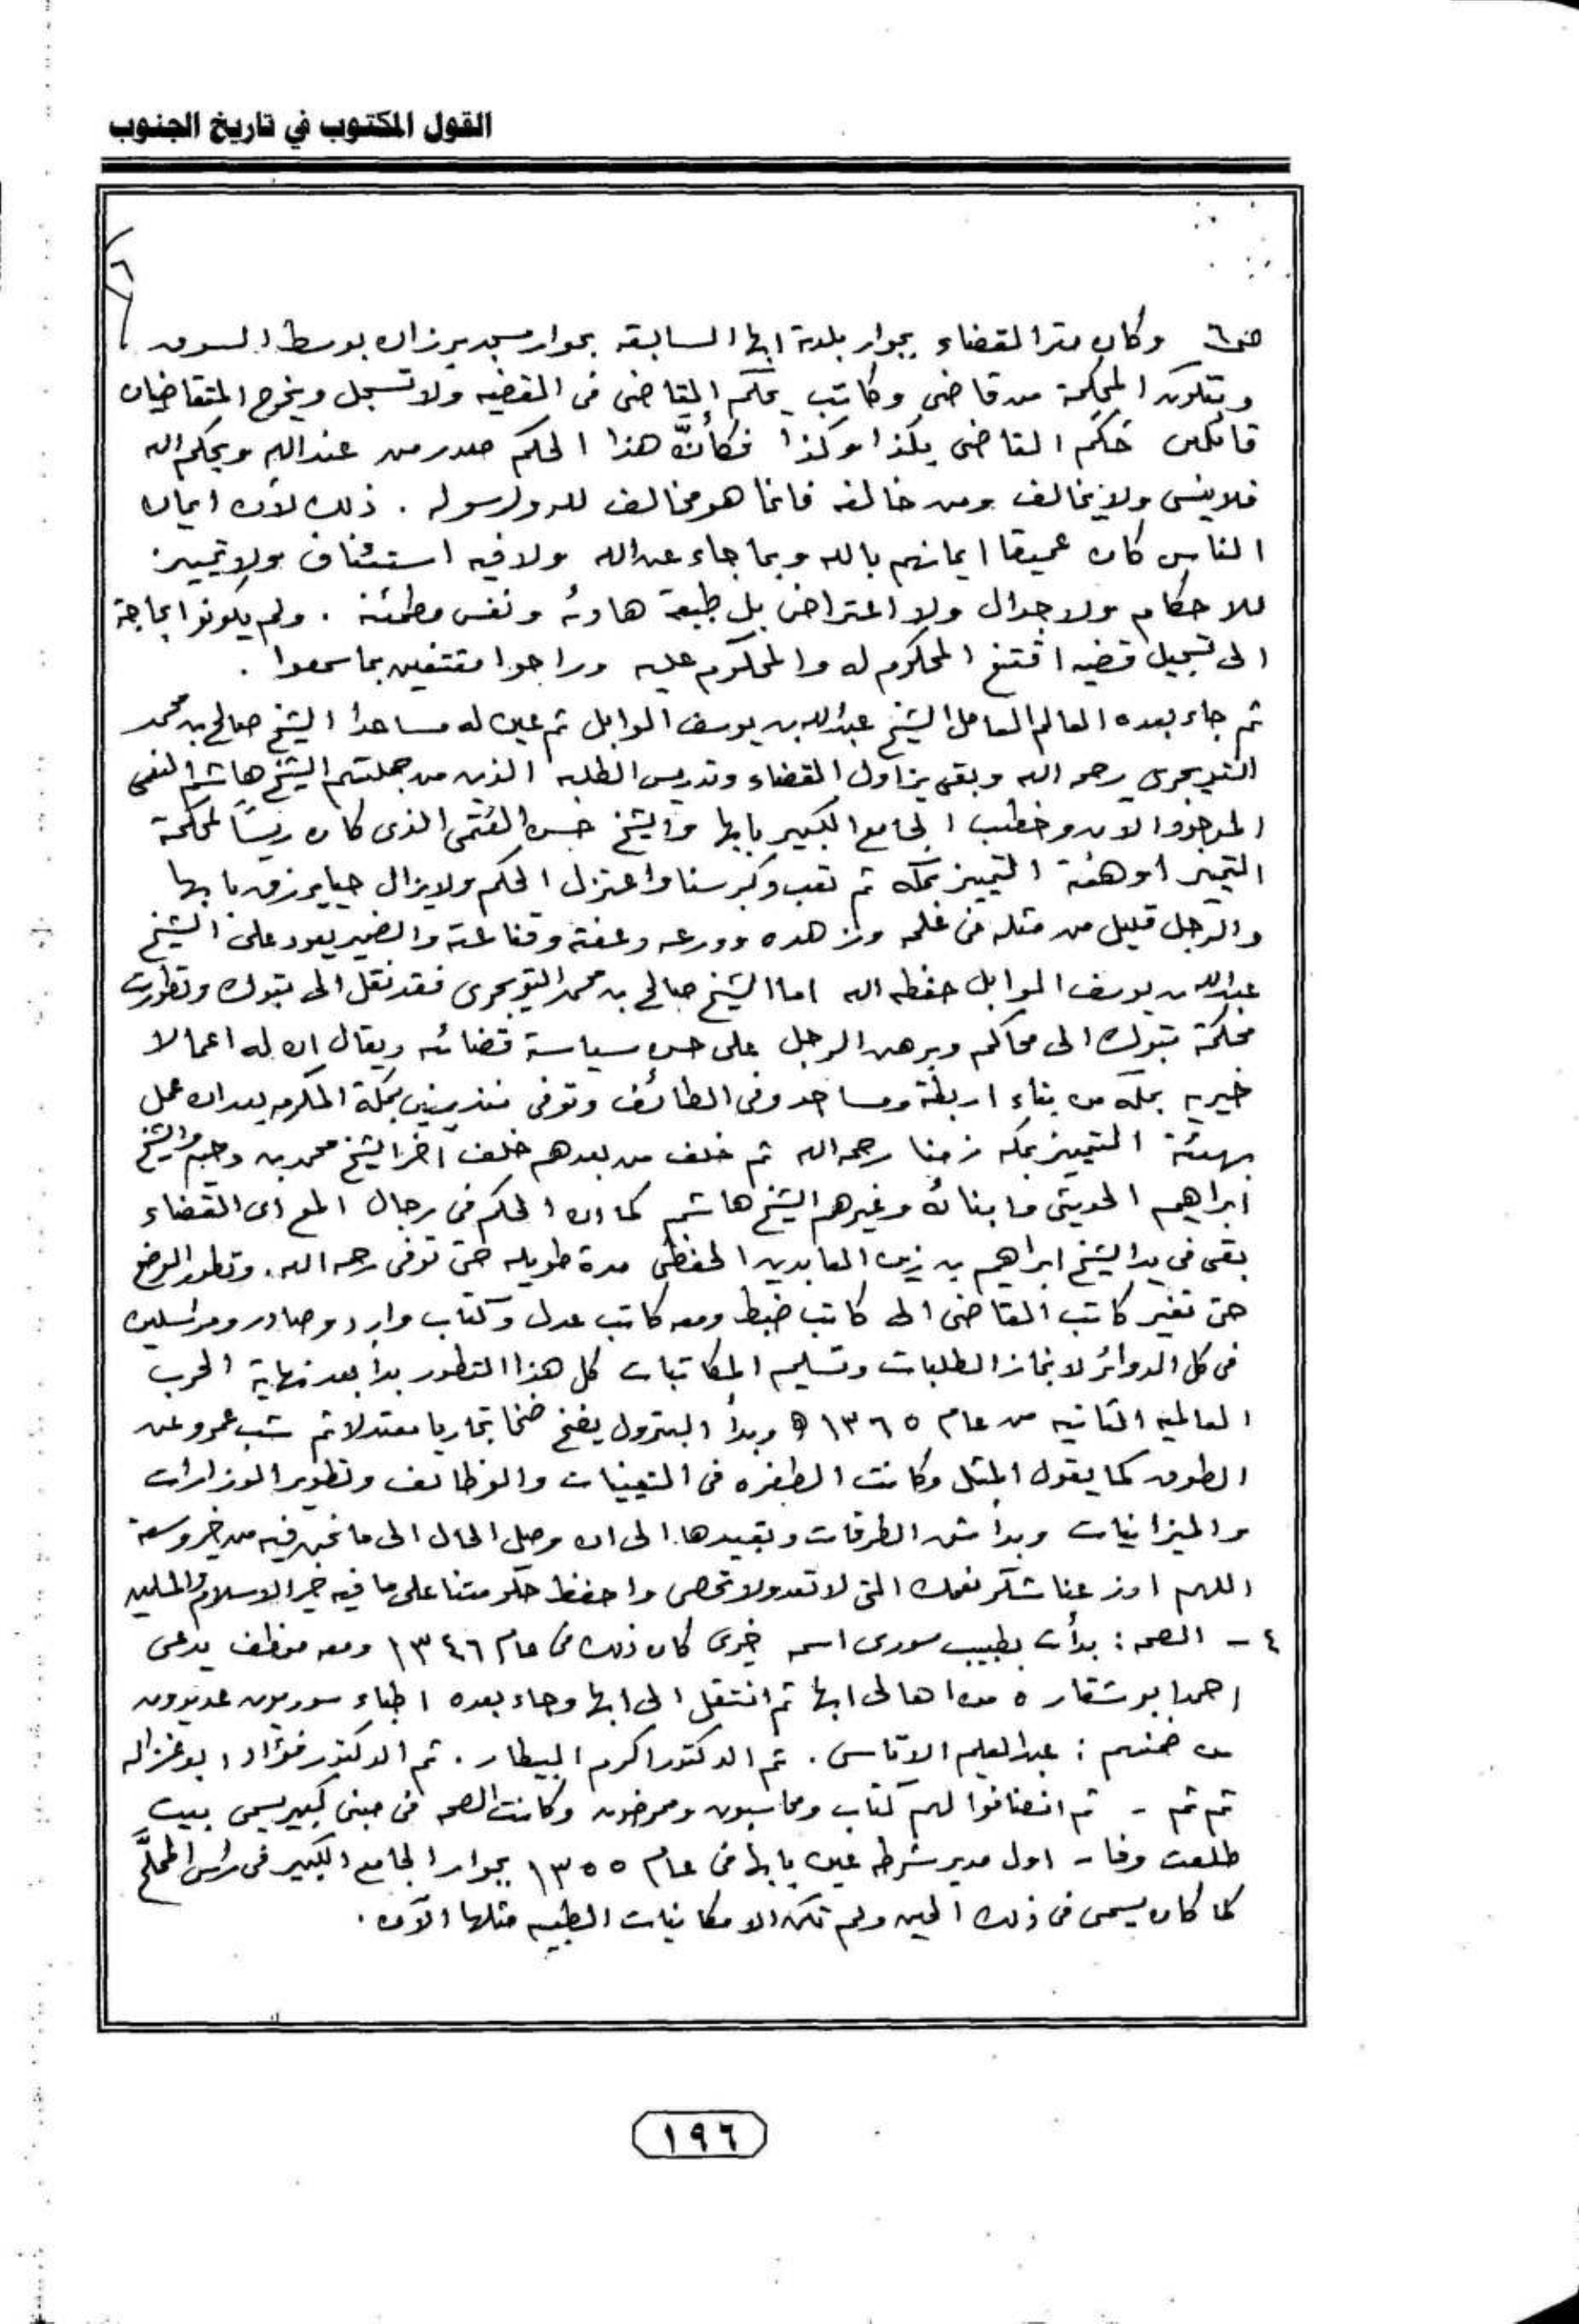 القول المكتوب في تاريخ الجنوب
٦
ص٦ وكان مقر القضاء بجوار بلدية ابها السابقة بجوار مسجد برزان بوسط السوق
وتتكون المحكمة من قاضي وكاتب يحكم القاضي في القضيه ولا تسجل ويخرج المتقاضيان
قائلين حَكَم القاضي بكذا وكذا فكأنَّ هذا الحكم صدر من عند الله وبحكم الله
فلا ينسى ولا يخالف ومن خالفه فانما هو مخالف لله ولرسوله . ذلك لأن ايمان
الناس كان عميقا ايمانهم بالله وبما جاء عن الله ولا فيه استئناف ولا تمييز
للاحكام ولا جدال ولا اعتراض بل طبيعة هادئه ونفس مطمئنه . ولم يكونوا بحاجة
الى تسجيل قضيه اقتنع المحكوم له والمحكوم عليه وراحوا مقتنعين بما سمعوا .
ثم جاء بعده العالم العامل الشيخ عبدالله بن يوسف الوابل ثم عين له مساعداً الشيخ صالح بن محمد
التويجري رحمه الله وبقي يزاول القضاء وتدريس الطلبه الذين من جملتهم الشيخ هاشم النعمي
الموجود الان وخطيب الجامع الكبير بابها والشيخ حسن العتمي الذي كان رئيساً لمحكمة
التمييز أو هئية التمييز بمكه ثم تعب وكبر سنا واعتزل الحكم ولا يزال حيا يرزق بابها
والرجل قليل من مثله في علمه وزهده وورعه وعفته وقناعته والضمير يعود على الشيخ
عبدالله بن يوسف الوابل حفظه الله اما الشيخ صالح بن محمد التويجري فقد نقل الى تبوك وتطورت
محكمة تبوك الى محاكم وبرهن الرجل على حسن سياسة قضائه ويقال ان له اعمالا
خيريه بمكه من بناء اربطة ومساجد وفي الطائف وتوفي منذ سنين بمكة المكرمه بعد ان عمل
بهيئة التمييز بمكه زمنا رحمه الله ثم خلف من بعدهم خلف آخر الشيخ محمد بن والشيخ
ابراهيم الحديثي وابنائه وغيرهم الشيخ هاشم كما ان الحكم في رجال المع اى القضاء
بقى في يد الشيخ ابراهيم بن زين العابدين الحفظي مدة طويله حتى توفي رحمه الله . وتطور الوضع
حتى تغير كاتب القاضي الى كاتب ضبط ومعه كاتب عدل وكتاب وارد وصادر ومراسلين
في كل الدوائر لانجاز الطلبات وتسليم المكاتبات كل هذا التطور بدأ بعد نهاية الحرب
العالميه الثانيه من عام ١٣٦٥ ه وبدأ البترول يضخ ضخا تجاريا معتدلا ثم شب عمرو عن
الطوق كما يقول المثل وكانت الطفره في التعيينات والوظائف وتطوير الوزارات
والميزانيات وبدأ شق الطرقات وتعبيدها الى ان وصل الحال الى ما نحن فيه من خير وسعة
اللهم اوزعنا شكر نعمك التي لا تعد ولا تحصى واحفظ حكومتنا على ما فيه خير الاسلام والمسلمين
٤ - الصحه : بدأت بطبيب سوري اسمه خيري كان ذلك في عام ١٣٤٦ ومعه موظف يدعى
احمد ابو شقاره من اهالى ابها ثم انتقل الى ابها وجاء بعده اطباء سوريون عديدون
من ضمنهم : عبدالعليم الاتاسي . ثم الدكتور اكرم البيطار . ثم الدكتور فؤاد ابو غزاله
ثم ثم - ثم انضافوا لهم كتاب ومحاسبون وممرضون وكانت الصحه في مبنى كبير يسمى بيت
طلعت وفا - اول مدير شرطه عين بابها في عام ١٣٥٥ بجوار الجامع الكبير في راس
كما كان يسمى في ذلك الحين ولم تكن الامكانيات الطبيه مثلها الآن .
١٩٦